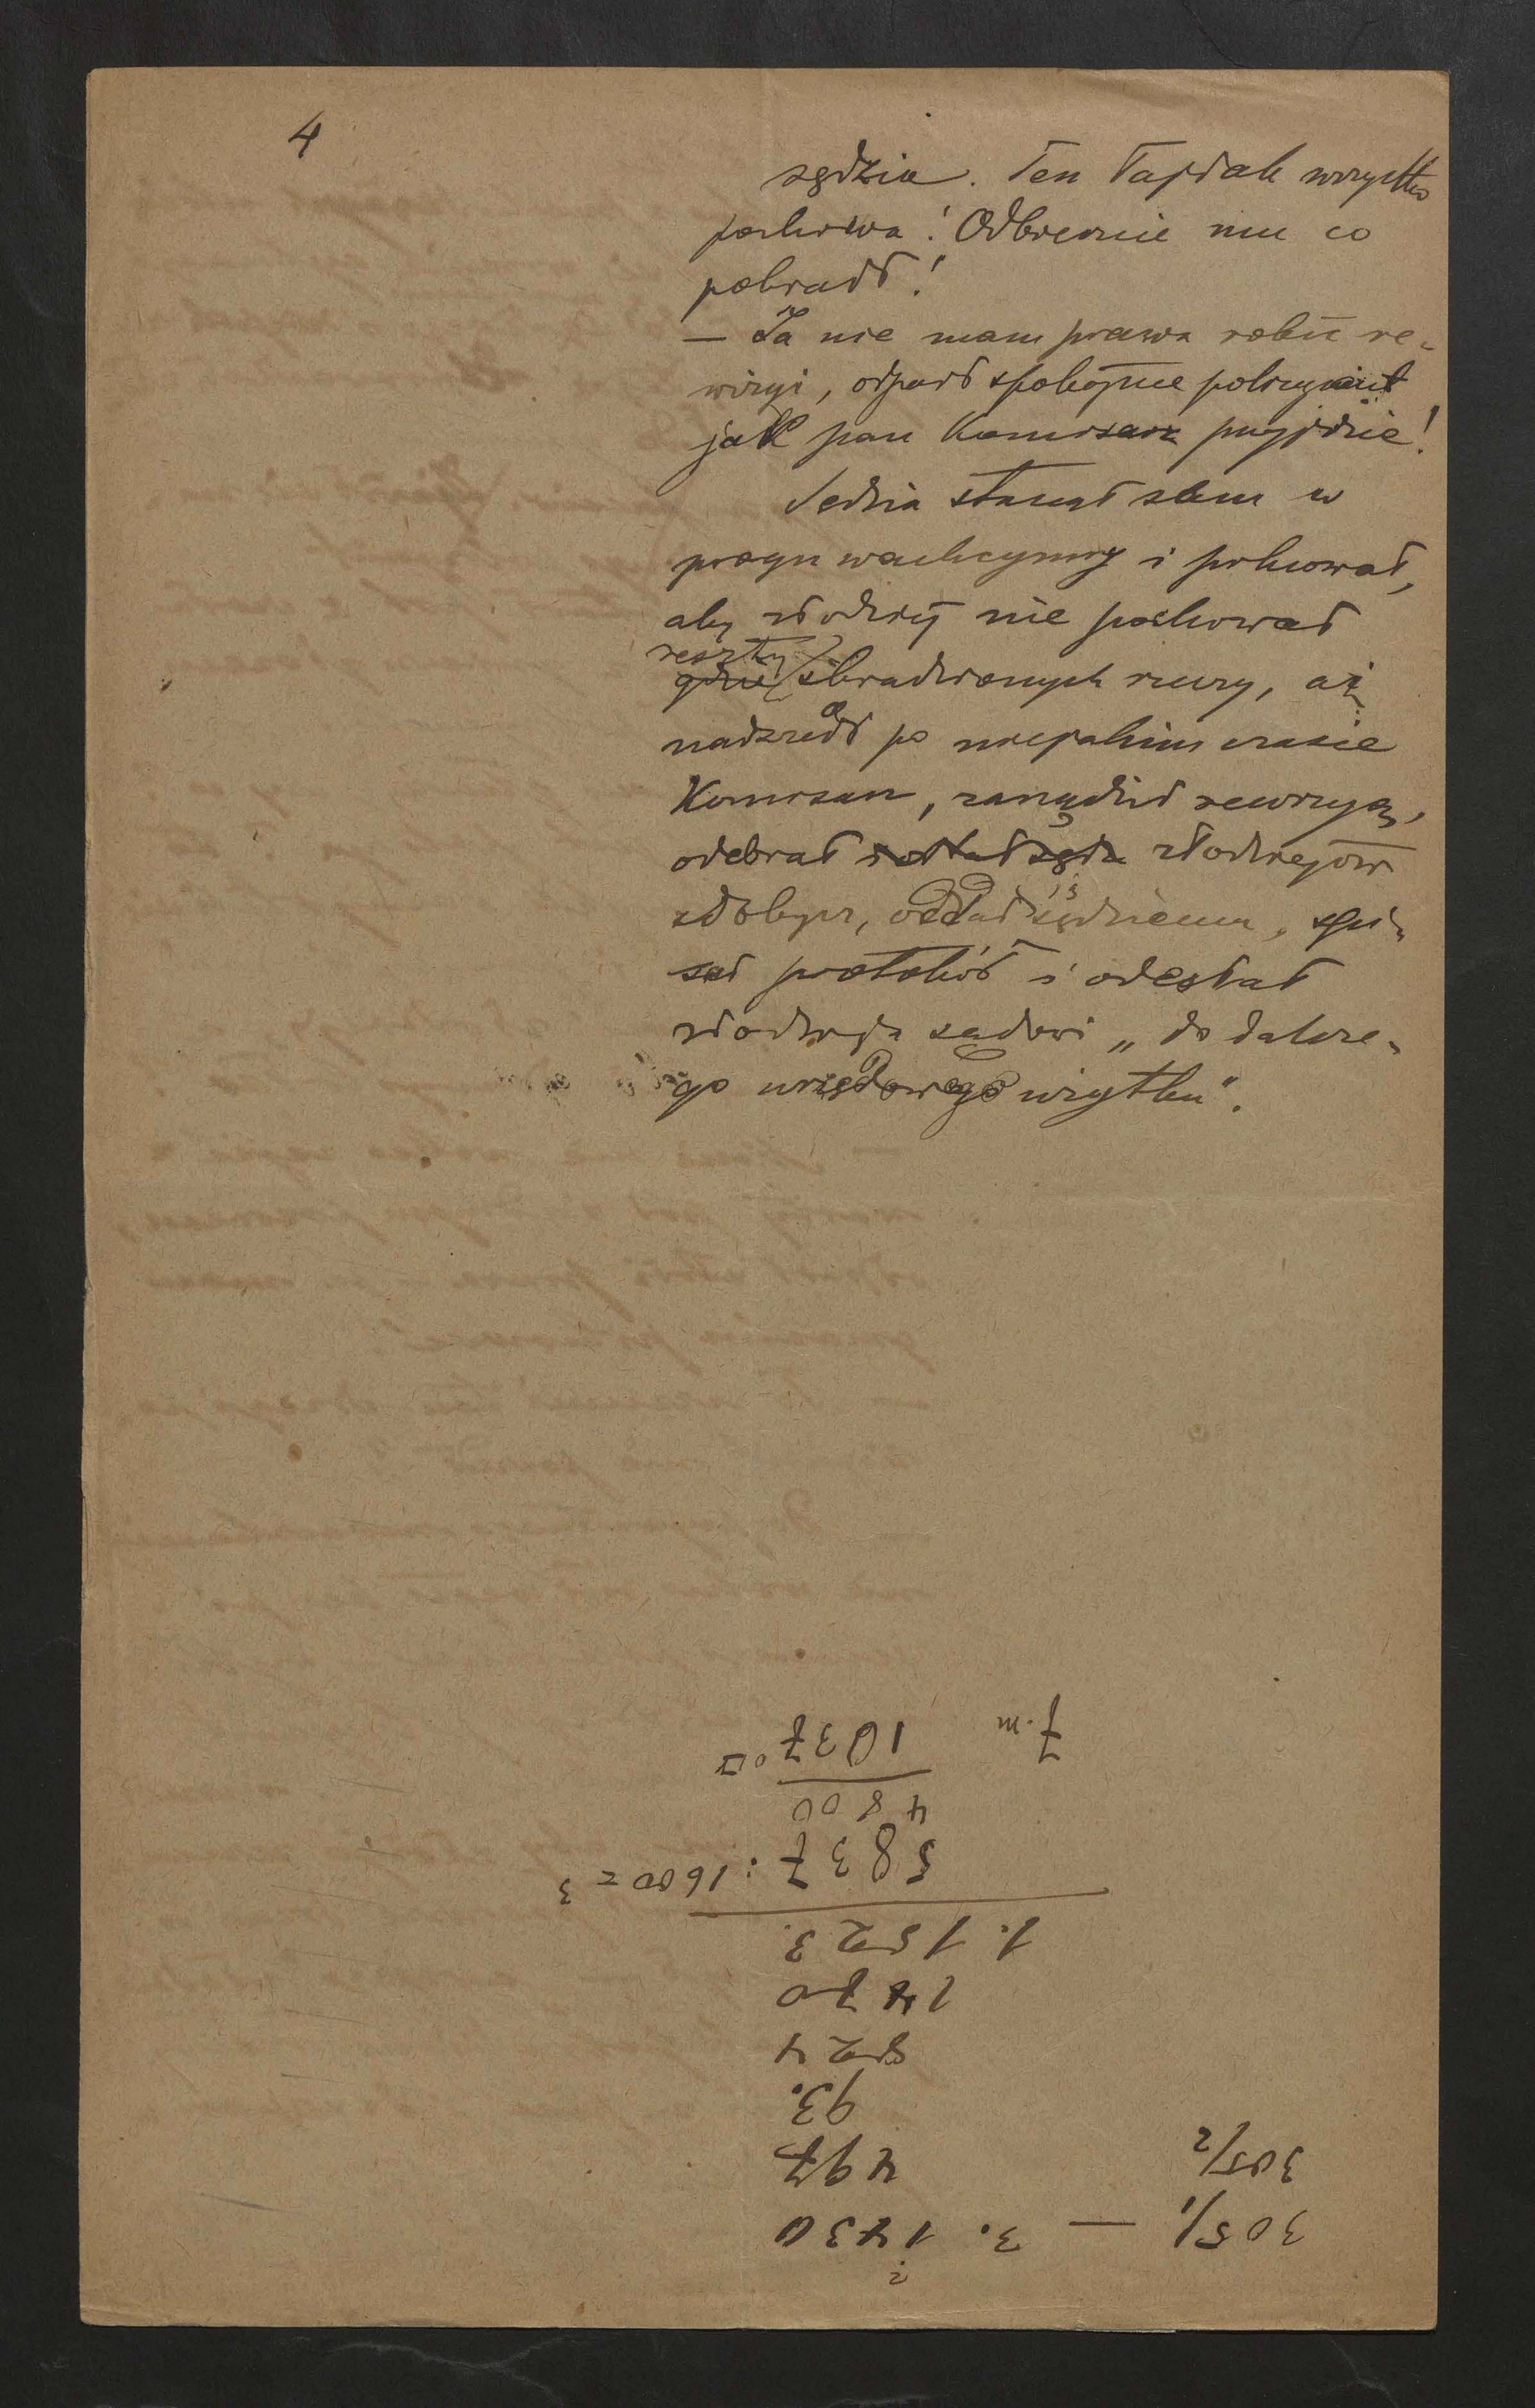 4
sędzia. Ten łajdak wszystko
pochowa! Odbierzcie mu co
pokradł!
— Ja nie mam prawa robić re-
wizyi, odparł spokojnie policyant
jak pan Komisarz przyjdzie!
Sędzia stanął sam w
progu wachcymry i pilnował,
aby złodziej nie pochował
reszty
gdzie skradzionych rzeczy, aż
nadszedł po niejakim czasie
Komisarz, zarządził rewizyą,
odebrał złodziejowi
zdobycz, oddał sędziemu, spi-
sał protokół i odesłał
złodzieja sądowi „do dalsze-
go urzędowego użytku".
305/1 — 3. 1730
305/2
497
93.
824
1470
1. 1523.
5837 : 1600 = 3
4800
1037
7. m